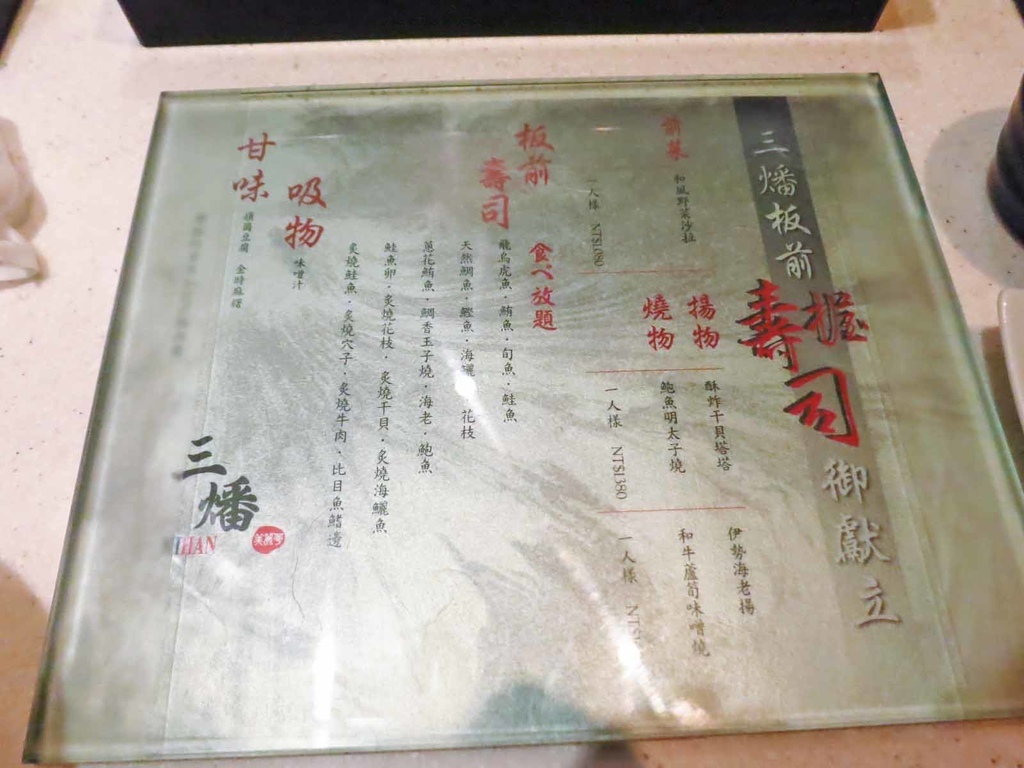 三燔板前握壽司御獻立
前菜
和風野菜沙拉
一人樣 NT$1,080
揚物
燒物
酥炸干貝塔塔
鮑魚明太子燒
一人樣 NT$1,380
伊勢海老揚
和牛蘆筍味噌燒
一人樣 NT$1
板前
壽司
食べ放題
龍烏虎魚·鮪魚·旬魚·鮭魚
天然鯛魚·鰹魚·海鱺·花枝
蔥花鮪魚·鯛香玉子燒·海老·鮑魚
鮭魚卵·炙燒花枝·炙燒干貝·炙燒海鱺魚
炙燒鮭魚·炙燒穴子·炙燒牛肉·比目魚鰭邊
吸物
味噌汁
甘味
豆腐 金時麻糬
三燔
HAN
美麗華